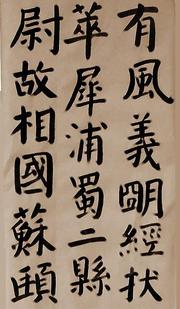 有風義明經状
華犀浦蜀二縣
尉故相國蘇頲